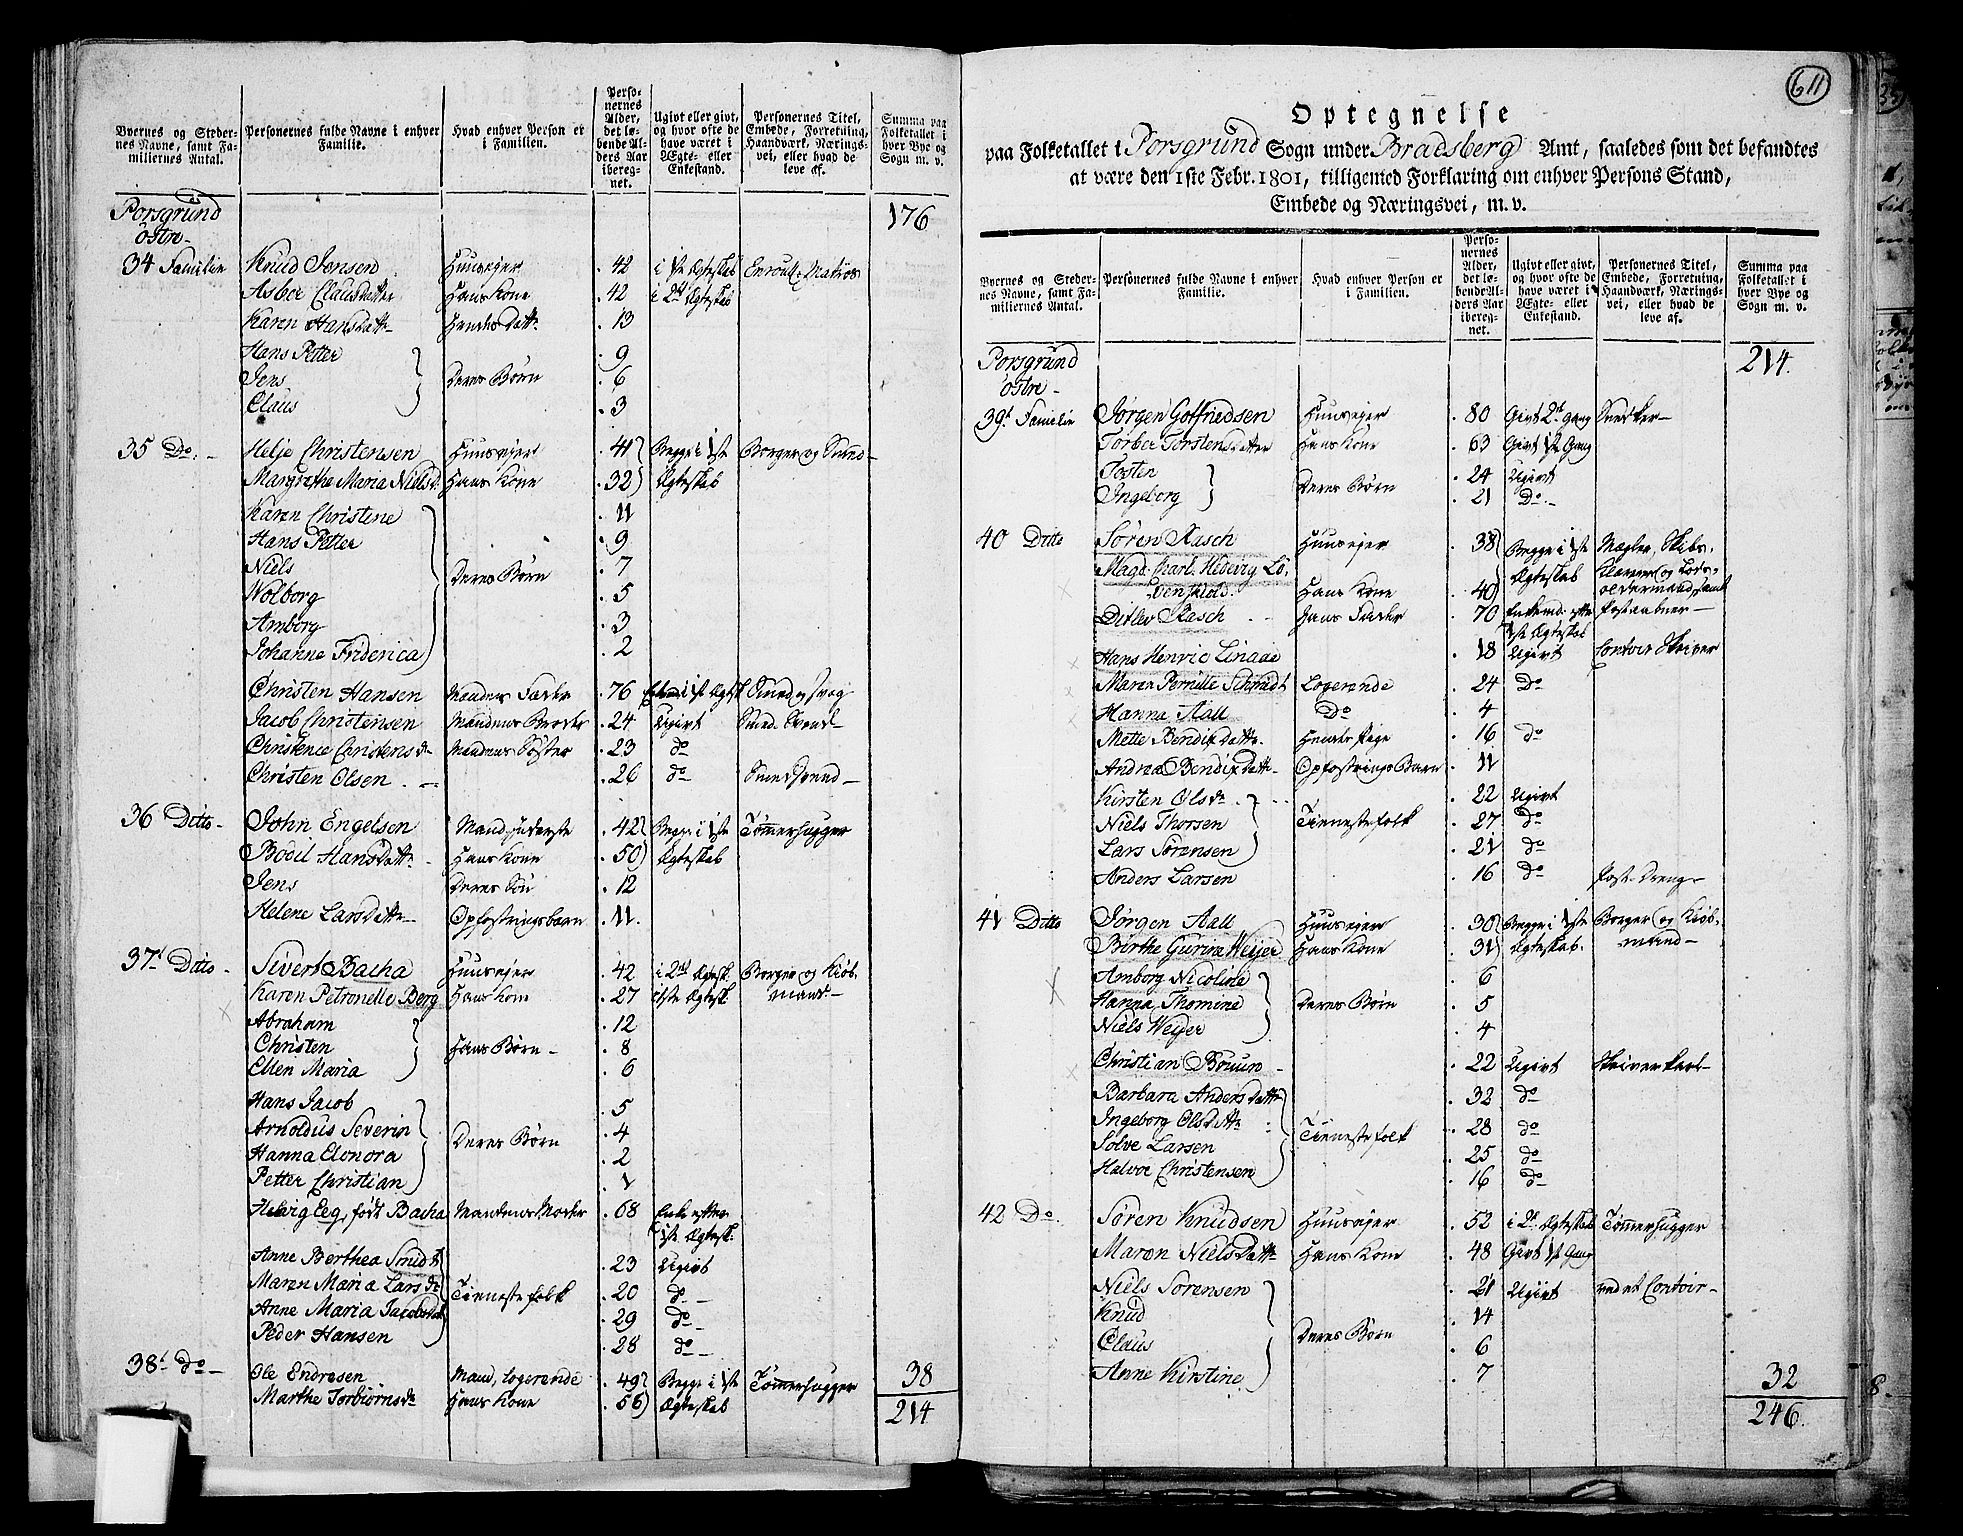 Byernes og Steder-
nes Navne, samt Fa-
miliernes Antal.
Personernes fulde Navne i enhver
Familie.
Hvad enhver Person er
i Familien.
Perso-
nernes
Alder,
det lø-
bende Al-
ders Aar
iberegn-
net.
Ugivt eller givt,
og hvor ofte de
have været i
Ægte- eller
Enkestand.
Personernes Titel,
Embede, Forretning,
Haandværk, Nærings-
vei, eller hvad de
leve af.
Summa paa
Folketallet i
hver Bye og
Sogn m. v.
Porsgrund 176
østre
34 Familie Knud Jensen Huusejer 42 i 1ste Ægteskab Enroull. Matros
Asber Clausdatter Hans Kone 42 i 2d Ægteskab
Karen Hansdattr Hendes Dattr 13
Hans Petter 9
Jens Deres Børn 6
Claus 3
35 Do Helje Christensen Huusejer 41 Begge i 1ste Borger og Smed
Margrethe Maria Nielsd. Hans Kone 32 Ægteskab
Karen Christene 11
Hans Petter 9
Niels Deres Børn 7
Wolborg 5
Amborg 3
Johanne Friderica 2
Christen Hansen Mandens Fader 76
Jacob Christensen Mandens Broder 24 Ugivt Smed Svend
Christence Christensdr Mandens Søster 23 do
Christen Olsen 26 do Smedsvend
36 Ditto John Engelsen Mand, inderste 42 Begge i 1ste Tømmerhugger
Bodil Hansdattr Hans Kone 50 Ægteskab
Jens Deres Søn 12
Helene Larsdattr Opfostringsbarn 11
37 Ditto Sivert Bacha Huusejer 42 i 2det Ægtesk. Borger og Kiøb-
Karen Petronelle Berg Hans Kone 27 1ste Ægtesk. mand
Abraham 12
Christen Hans Børn 8
Ellen Maria 6
Hans Jacob 5
Arnoldus Severin Deres Børn 4
Hanna Elonora 2
Petter Christian 1
Hedvig Eeg, født Bacha Mandens Moder 68 Enke efter
1ste Ægtesk.
Anne Berthea Smidt 23 Ugivt
Maren Maria Larsdr Tienestefolk 20 do
Anne Maria Jacobsdatr 29 do
Peder Hansen 28 do
38 do Ole Endresen Mand, Logerende 49 Begge i 1ste Tømmerhugger 38
Marthe Torbiørnsdr Hans Kone 56 Ægteskab 214
611
Optegnelse
paa Folketallet i Porsgrund Sogn under Bradsberg Amt, saaledes som det befandtes
at være den 1ste Febr. 1801, tilligemed Forklaring om enhver Persons Stand,
Embede og Næringsvei, m. v.
Byernes og Steder-
nes Navne, samt Fa-
miliernes Antal.
Personernes fulde Navne i enhver
Familie.
Hvad enhver Person er
i Familien.
Perso-
nernes
Alder,
det lø-
bende Al-
ders Aar
iberegn-
net.
Ugivt eller givt,
og hvor ofte de
have været i
Ægte- eller
Enkestand.
Personernes Titel,
Embede, Forretning,
Haandværk, Nærings-
vei, eller hvad de
leve af.
Summa paa
Folketallet i
hver Bye og
Sogn m. v.
Porsgrund 214.
østre
39 Familie Jørgen Gotfriedsen Huusejer 80 Givt 2d Gang Snedker
Torber Torstensdatter Hans Kone 63 Givt 1ste Gang
Tosten Deres Børn 24 Ugivt
Ingeborg 21 Do
40 Ditto Søren Rasch Huusejer 38 Begge i 1ste Mægler, Skibs-
Magd. Charl. Hedevig Lø- Ægteskab Klarerer og Lods-
venskiold. Hans Kone 40 oldermand, samt
Ditlev Rasch Hans Fader 70 Enkemd. efter Postaabner
1ste Ægteskab
Hans Henric Linaae 18 Ugivt Contoir Skriver
Maren Pernille Schmidt Logerende 24 Do
Hanna Aall Do 4
Mette Bendixdattr. Hendes Pige 16 do
Andrea Bendixdattr. Opfostrings Barn 11
Kirsten Olsdr 22 Ugivt
Niels Thorsen Tienestefolk 27 do
Lars Sørensen 21 do
Anders Larsen 16 do Post-Dreng
41 Ditto Jørgen Aall Huusejer 30 Begge i 1ste Borger og Kiøb-
Birthe Gurina Weyer Hans Kone 31 Ægteskab. mand
Amborg Nicoline 6
Hanna Thomine Deres Børn 5
Niels Weyer 4
Christian Bruun 22 Ugivt Skriverkarl
Barbara Andersdattr 32 do
Ingeborg Olsdattr Tienestefolk 28 do
Solve Larsen 25 do
Halvor Christensen 16 do
42 Do. Søren Knudsen Huusejer 52 i 2d Ægteskab Tømmerhugger
Maren Nielsdattr Hans Kone 48 Givt 1ste Gang
Niels Sørensen 21 Ugivt ved et Contoir
Knud 14
Claus Deres Børn 6
Anne Kirstine 7 32
246.